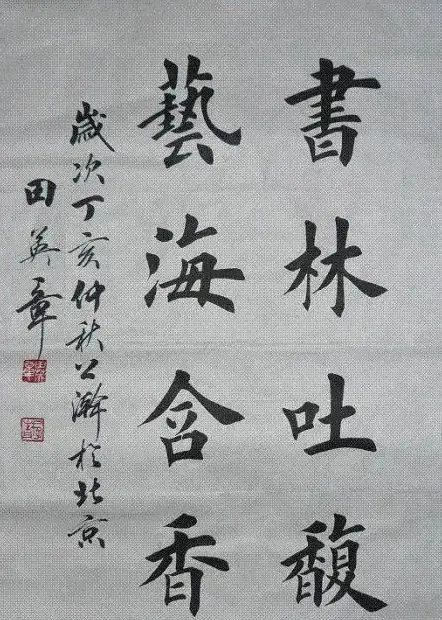 書林吐馥
藝海含香
歲次丁亥仲秋以瀚於北京
田英章